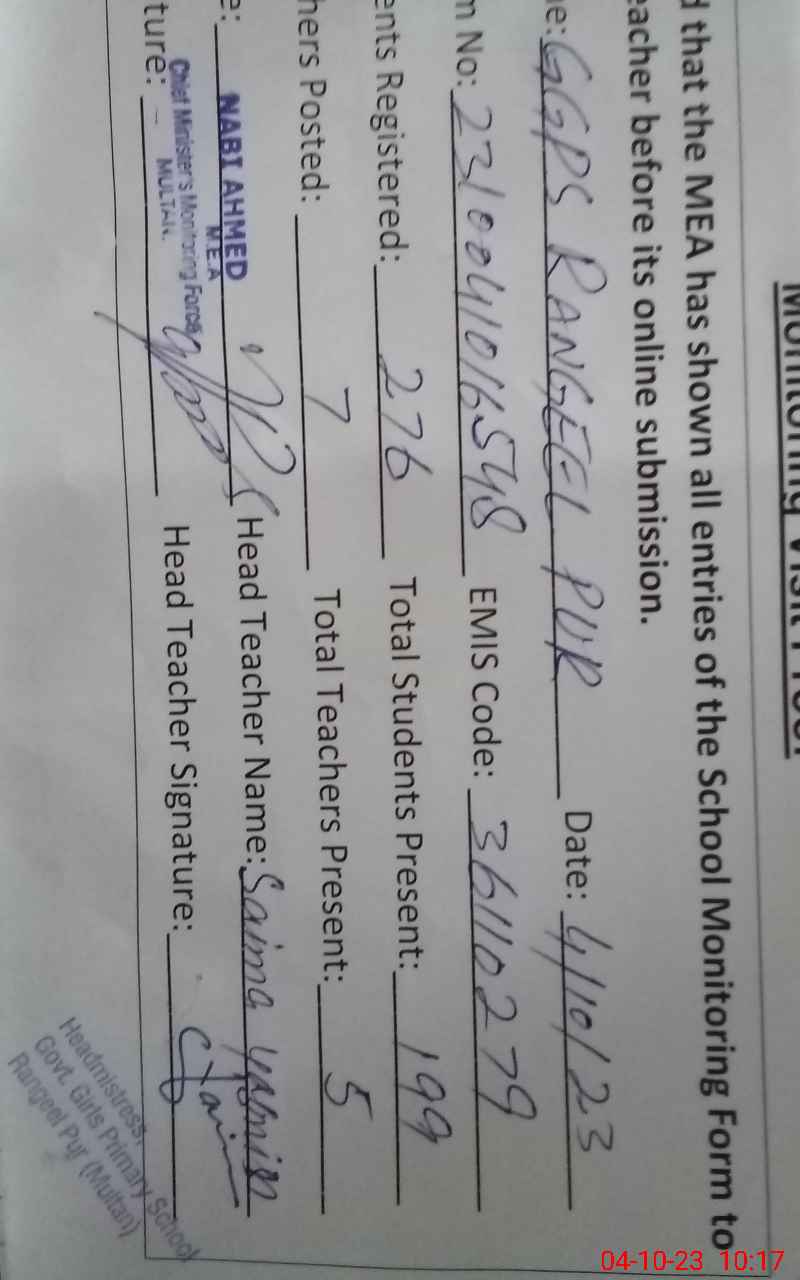 Monitoring Visit Proof
d that the MEA has shown all entries of the School Monitoring Form to
eacher before its online submission.
e: GGPS RANGEEL PUR Date: 4/10/23
m No: 2310041016548 EMIS Code: 36110279
ents Registered: 276 Total Students Present: 199
hers Posted: 7 Total Teachers Present: 5
e: NABI AHMED Head Teacher Name: Saima Yasmin
M.E.A
Chief Minister's Monitoring Force
MULTAN.
ture: Head Teacher Signature:
Headmistress,
Govt. Girls Primary School
Rangeel Pur (Multan)
04-10-23 10:17